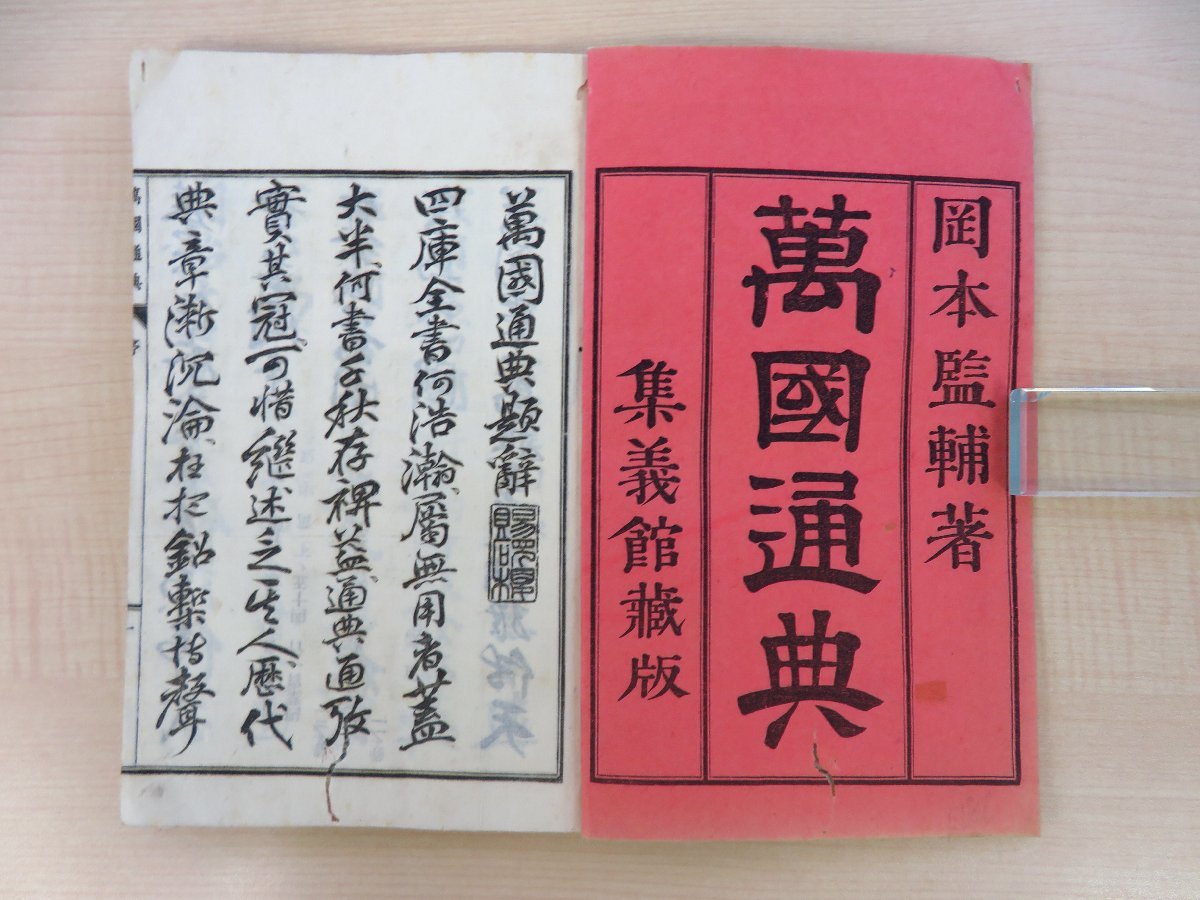 岡本監輔著
萬國通典
集義館藏版
萬國通典題辭
四庫全書何浩瀚屬無用者蓋
大半何書千秋存裨益通典通攷
實其冠可惜繼述乏其人歷代
典章漸沉淪
萬國通典
序